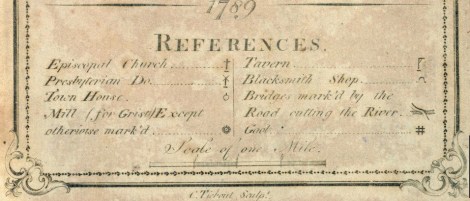 1789
REFERENCES.
Episcopal Church
Presbyterian Do.
Town House.
Mill (for Grist) Except
otherwise mark'd
Tavern
Blacksmith Shop.
Bridges mark'd by the
Road cutting the River.
Gaol
Scale of one Mile.
C. Tiebout Sculpt.